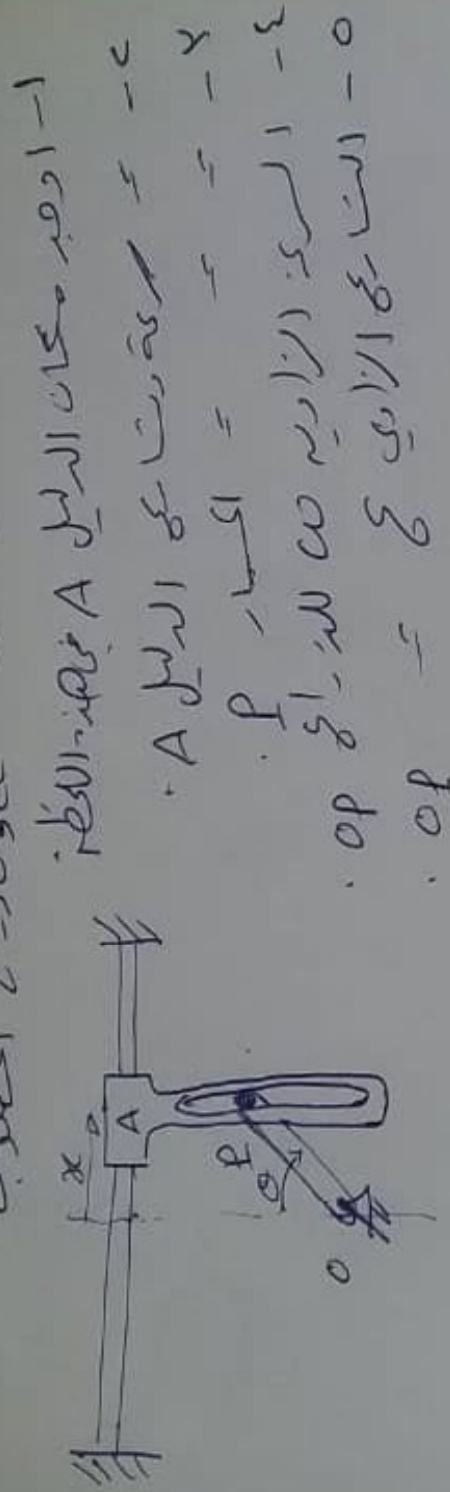 ١- اوجد مكان الدليل A في هذه اللحظة.
٢- = سرعة وتسارع الدليل A.
٣- = = = المسمار P.
٤- السرعة الزاوية ω للذراع OP.
٥- التسارع الزاوي = OP.
x
A
P
θ
O